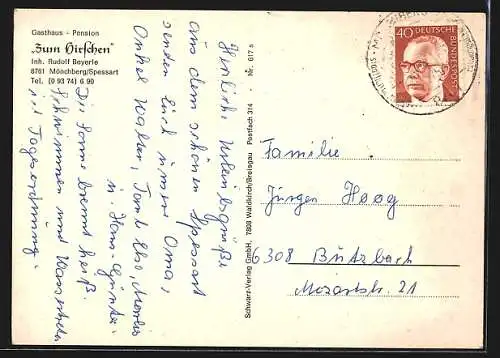 Gasthaus - Pension
„Zum Hirschen"
Inh. Rudolf Beyerle
8761 Mönchberg/Spessart
Tel. (0 93 74) 6 99
Herzliche
aus dem schönen Spessart
senden Euch immer Oma,
Onkel Walter, Tante Else,
u. Hans-Günter.
Die Sonne brennt heiß
Schwimmen und
ist Tagesordnung.
Schwarz-Verlag GmbH. 7808 Waldkirch/Breisgau Postfach 314 · Nr. 617 s
40 DEUTSCHE BUNDESPOST
Familie
Jürgen Haag
6308 Butzbach
Mozartstr. 21